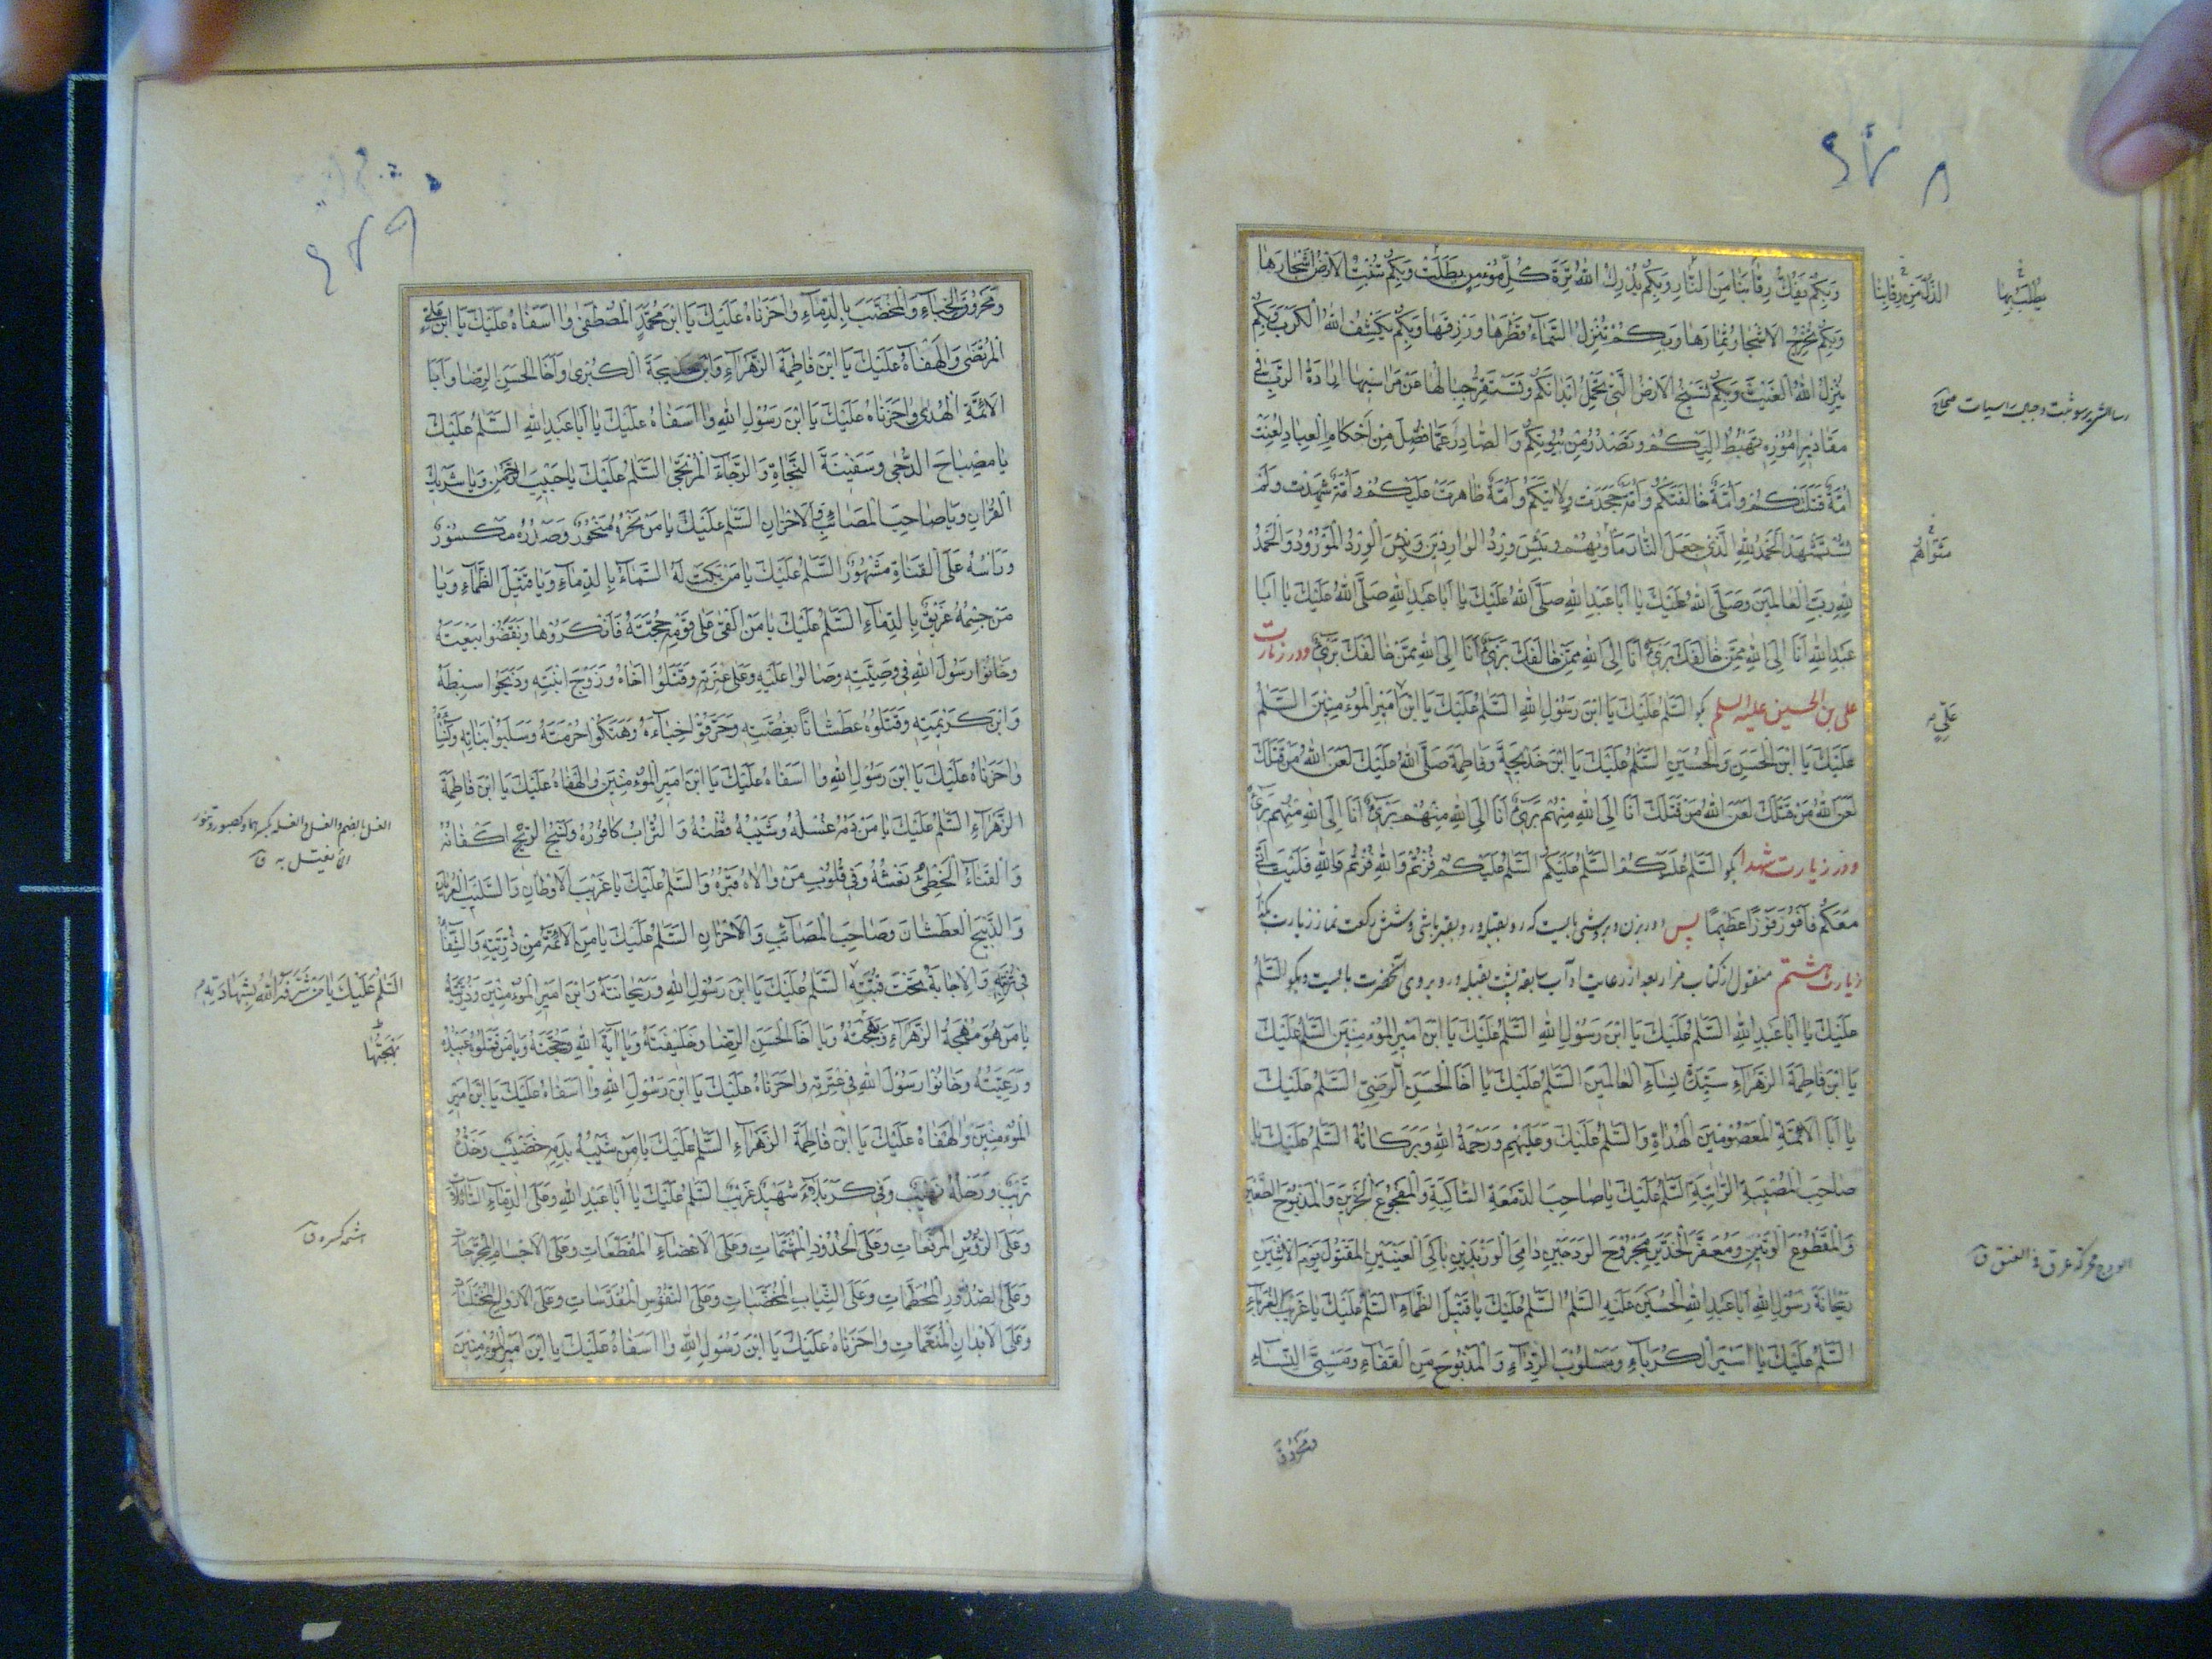 وَبِكُمْ يَفُكُّ رِقَابَنَا مِنَ النَّارِ وَبِكُمْ يُدْرِكُ اللهُ تِرَةَ كُلِّ مُؤْمِنٍ يُطْلَبُ وَبِكُمْ تُنْبِتُ الْاَرْضُ اَشْجَارَهَا
وَبِكُمْ تُخْرِجُ الْاَشْجَارُ ثِمَارَهَا وَبِكُمْ تُنْزِلُ السَّمَاءُ قَطْرَهَا وَرِزْقَهَا وَبِكُمْ يَكْشِفُ اللهُ الْكَرْبَ وَبِكُمْ
يُنَزِّلُ اللهُ الْغَيْثَ وَبِكُمْ تُسَبِّحُ الْاَرْضُ الَّتِي تَحْمِلُ اَبْدَانَكُمْ وَتَسْتَقِرُّ جِبَالُهَا عَنْ مَرَاسِيهَا اِرَادَةُ الرَّبِّ فِي
مَقَادِيرِ اُمُورِهِ تَهْبِطُ اِلَيْكُمْ وَتَصْدُرُ مِنْ بُيُوتِكُمْ وَالصَّادِرُ عَمَّا فُصِّلَ مِنْ اَحْكَامِ الْعِبَادِ لُعِنَتْ
اُمَّةٌ قَتَلَتْكُمْ وَاُمَّةٌ خَالَفَتْكُمْ وَاُمَّةٌ جَحَدَتْ وِلَايَتَكُمْ وَاُمَّةٌ ظَاهَرَتْ عَلَيْكُمْ وَاُمَّةٌ شَهِدَتْ وَلَمْ
تُسْتَشْهَدْ اَلْحَمْدُ لِلّٰهِ الَّذِي جَعَلَ النَّارَ مَأْوٰيهُمْ وَبِئْسَ وِرْدُ الْوَارِدِينَ وَبِئْسَ الْوِرْدُ الْمَوْرُودُ وَالْحَمْدُ
لِلّٰهِ رَبِّ الْعَالَمِينَ وَصَلَّى اللهُ عَلَيْكَ يَا اَبَا عَبْدِ اللهِ صَلَّى اللهُ عَلَيْكَ يَا اَبَا عَبْدِ اللهِ صَلَّى اللهُ عَلَيْكَ يَا اَبَا
عَبْدِ اللهِ اَنَا اِلَى اللهِ مِمَّنْ خَالَفَكَ بَرِيءٌ اَنَا اِلَى اللهِ مِمَّنْ خَالَفَكَ بَرِيءٌ اَنَا اِلَى اللهِ مِمَّنْ خَالَفَكَ بَرِيءٌ ودر زیارت
علی بن الحسین علیه السلم بکو اَلسَّلَمُ عَلَيْكَ يَا ابْنَ رَسُولِ اللهِ اَلسَّلَمُ عَلَيْكَ يَا ابْنَ اَمِيرِ الْمُؤْمِنِينَ اَلسَّلَمُ
عَلَيْكَ يَا ابْنَ الْحَسَنِ وَالْحُسَيْنِ اَلسَّلَمُ عَلَيْكَ يَا ابْنَ خَدِيجَةَ وَفَاطِمَةَ صَلَّى اللهُ عَلَيْكَ لَعَنَ اللهُ مَنْ قَتَلَكَ
لَعَنَ اللهُ مَنْ قَتَلَكَ لَعَنَ اللهُ مَنْ قَتَلَكَ اَنَا اِلَى اللهِ مِنْهُمْ بَرِيءٌ اَنَا اِلَى اللهِ مِنْهُمْ بَرِيءٌ اَنَا اِلَى اللهِ مِنْهُمْ بَرِيءٌ
ودر زیارت شهدا بکو اَلسَّلَمُ عَلَيْكُمْ اَلسَّلَمُ عَلَيْكُمْ اَلسَّلَمُ عَلَيْكُمْ فُزْتُمْ وَاللهِ فُزْتُمْ وَاللهِ فَلَيْتَ اَنِّي
مَعَكُمْ فَاَفُوزَ فَوْزًا عَظِيمًا پس رو بقبله ورو بقبر باشی وشش رکعت نماز زیارت بکن
زیارت هشتم منقول از کتاب مزار بعد از رعایت آداب سابقه پشت بقبله ورو بروی آنحضرت بایست وبکو اَلسَّلَمُ
عَلَيْكَ يَا اَبَا عَبْدِ اللهِ اَلسَّلَمُ عَلَيْكَ يَا ابْنَ رَسُولِ اللهِ اَلسَّلَمُ عَلَيْكَ يَا ابْنَ اَمِيرِ الْمُؤْمِنِينَ اَلسَّلَمُ عَلَيْكَ
يَا ابْنَ فَاطِمَةَ الزَّهْرَاءِ سَيِّدَةِ نِسَاءِ الْعَالَمِينَ اَلسَّلَمُ عَلَيْكَ يَا اَخَا الْحَسَنِ الرَّضِيِّ اَلسَّلَمُ عَلَيْكَ
يَا اَبَا الْاَئِمَّةِ الْمَعْصُومِينَ الْهُدَاةِ وَالسَّلَمُ عَلَيْكَ وَعَلَيْهِمْ وَرَحْمَةُ اللهِ وَبَرَكَاتُهُ اَلسَّلَمُ عَلَيْكَ يَا
صَاحِبَ الْمُصِيبَةِ الرَّاتِبَةِ اَلسَّلَمُ عَلَيْكَ يَا صَاحِبَ الدَّمْعَةِ السَّاكِبَةِ وَالْمَفْجُوعَ الْحَزِينَ وَالْمَذْبُوحَ
وَالْمَقْطُوعَ الْوَتِينِ وَمُعَفَّرَ الْخَدَّيْنِ مَجْرُوحَ الْوَدَجَيْنِ دَامِيَ الْوَرِيدَيْنِ بَاكِيَ الْعَيْنَيْنِ الْمَقْتُولَ يَوْمَ الْاِثْنَيْنِ
رَيْحَانَةَ رَسُولِ اللهِ اَبَا عَبْدِ اللهِ الْحُسَيْنَ عَلَيْهِ السَّلَمُ اَلسَّلَمُ عَلَيْكَ يَا قَتِيلَ الظَّمَاءِ اَلسَّلَمُ عَلَيْكَ يَا غَرِيبَ الْغُرَبَاءِ
اَلسَّلَمُ عَلَيْكَ يَا اَسِيرَ الْكُرَبَاءِ وَمَسْلُوبَ الرِّدَاءِ وَالْمَذْبُوحَ مِنَ الْقَفَاءِ وَمَسْبِيَّ النِّسَاءِ
وَمَحْرُوقَ
يُطْلَبُ بِهَا
الذُّلَّ مِنْ رِقَابِنَا
مَثْوٰاهُمْ
الودج محركة عرق فى العنق ق
وَمَحْرُوقَ الْخِبَاءِ وَالْمُخَضَّبَ بِالدِّمَاءِ وَاحَزَنَاهُ عَلَيْكَ يَا ابْنَ مُحَمَّدٍ الْمُصْطَفٰى وَا اَسَفَاهُ عَلَيْكَ يَا ابْنَ عَلِيٍّ
الْمُرْتَضٰى وَالَهْفَاهُ عَلَيْكَ يَا ابْنَ فَاطِمَةَ الزَّهْرَاءِ وَابْنَ خَدِيجَةَ الْكُبْرٰى وَاَخَا الْحَسَنِ الرِّضَا وَاَبَا
الْاَئِمَّةِ الْهُدٰى وَاحَزَنَاهُ عَلَيْكَ يَا ابْنَ رَسُولِ اللهِ وَا اَسَفَاهُ عَلَيْكَ يَا اَبَا عَبْدِ اللهِ اَلسَّلَمُ عَلَيْكَ
يَا مِصْبَاحَ الدُّجٰى وَسَفِينَةَ النَّجَاةِ وَالرَّجَاءَ الْمُرْتَجٰى اَلسَّلَمُ عَلَيْكَ يَا حَبِيبَ الرَّحْمٰنِ وَيَا شَرِيكَ
الْقُرْاٰنِ وَيَا صَاحِبَ الْمَصَائِبِ وَالْاَحْزَانِ اَلسَّلَمُ عَلَيْكَ يَا مَنْ نَحْرُهُ مَنْحُورٌ وَصَدْرُهُ مَكْسُورٌ
وَرَأْسُهُ عَلَى الْقَنَاةِ مَشْهُورٌ اَلسَّلَمُ عَلَيْكَ يَا مَنْ بَكَتْ لَهُ السَّمَاءُ بِالدِّمَاءِ وَيَا قَتِيلَ الظَّمَاءِ وَيَا
مَنْ جِسْمُهُ غَرِيقٌ بِالدِّمَاءِ اَلسَّلَمُ عَلَيْكَ يَا مَنْ اَلْقٰى عَلٰى قَوْمِهِ حُجَّتَهُ فَاَنْكَرُوهَا وَنَقَضُوا بَيْعَتَهُ
وَخَانُوا رَسُولَ اللهِ فِي وَصِيَّتِهِ وَصَالُوا عَلَيْهِ وَعَلٰى عِتْرَتِهِ وَقَتَلُوا اَخَاهُ وَزَوْجَ ابْنَتِهِ وَذَبَحُوا سِبْطَهُ
وَابْنَ كَرِيمَتِهِ وَقَتَلُوهُ عَطْشَانًا بِغُصَّتِهِ وَحَرَقُوا خِبَاءَهُ وَهَتَكُوا حُرْمَتَهُ وَسَلَبُوا بَنَاتِهِ
وَاحَزَنَاهُ عَلَيْكَ يَا ابْنَ رَسُولِ اللهِ وَا اَسَفَاهُ عَلَيْكَ يَا ابْنَ اَمِيرِ الْمُؤْمِنِينَ وَالَهْفَاهُ عَلَيْكَ يَا ابْنَ فَاطِمَةَ
الزَّهْرَاءِ اَلسَّلَمُ عَلَيْكَ يَا مَنْ دَمُهُ غُسْلُهُ وَشَيْبُهُ قُطْنُهُ وَالتُّرَابُ كَافُورُهُ وَنَسْجُ الرِّيحِ اَكْفَانُهُ
وَالْقَنَاءُ الْخَطِّيُّ نَعْشُهُ وَفِي قُلُوبِ مَنْ وَالَاهُ قَبْرُهُ وَالسَّلَمُ عَلَيْكَ يَا غَرِيبَ الْاَوْطَانِ وَالسَّلِيبَ الْعُرْيَانَ
وَالذَّبِيحَ الْعَطْشَانَ وَصَاحِبَ الْمَصَائِبِ وَالْاَحْزَانِ اَلسَّلَمُ عَلَيْكَ يَا مَنِ الْاَئِمَّةُ مِنْ ذُرِّيَّتِهِ وَالشِّفَاءُ
فِي تُرْبَتِهِ وَالْاِجَابَةُ تَحْتَ قُبَّتِهِ اَلسَّلَمُ عَلَيْكَ يَا ابْنَ رَسُولِ اللهِ وَرَيْحَانَتَهُ وَابْنَ اَمِيرِ الْمُؤْمِنِينَ وَذُرِّيَّتَهُ
يَا مَنْ هُوَ مُهْجَةُ الزَّهْرَاءِ وَبَهْجَتُهُ وَيَا اَخَا الْحَسَنِ الرِّضَا وَخَلِيفَتَهُ وَيَا اٰيَةَ اللهِ وَحُجَّتَهُ وَيَا مَنْ قَتَلُوهُ عَبِيدُهُ
وَرَعِيَّتُهُ وَخَانُوا رَسُولَ اللهِ فِي عِتْرَتِهِ وَاحَزَنَاهُ عَلَيْكَ يَا ابْنَ رَسُولِ اللهِ وَا اَسَفَاهُ عَلَيْكَ يَا ابْنَ اَمِيرِ
الْمُؤْمِنِينَ وَالَهْفَاهُ عَلَيْكَ يَا ابْنَ فَاطِمَةَ الزَّهْرَاءِ اَلسَّلَمُ عَلَيْكَ يَا مَنْ شَيْبُهُ بِدَمِهِ خَضِيبٌ وَخَدُّهُ
تَرِيبٌ وَرَحْلُهُ نَهِيبٌ وَفِي كَرْبَلَاءَ شَهِيدٌ غَرِيبٌ اَلسَّلَمُ عَلَيْكَ يَا اَبَا عَبْدِ اللهِ وَعَلَى الدِّمَاءِ السَّائِلَاتِ
وَعَلَى الرُّؤُسِ الْمُرَفَّعَاتِ وَعَلَى الْخُدُودِ الْمُهَشَّمَاتِ وَعَلَى الْاَعْضَاءِ الْمُقَطَّعَاتِ وَعَلَى الْاَجْسَامِ الْمُجَرَّحَاتِ
وَعَلَى الصُّدُورِ الْمُحَطَّمَاتِ وَعَلَى الثِّيَابِ الْمُخَضَّبَاتِ وَعَلَى النُّفُوسِ الْمُقَدَّسَاتِ وَعَلَى الْاَرْوَاحِ الْمُخْتَلَسَاتِ
وَعَلَى الْاَبْدَانِ وَاحَزَنَاهُ عَلَيْكَ يَا ابْنَ رَسُولِ اللهِ وَا اَسَفَاهُ عَلَيْكَ يَا ابْنَ اَمِيرِ الْمُؤْمِنِينَ
اَلسَّلَمُ عَلَيْكَ يَا مَنْ شَرَّفَهُ اللهُ بِشَهَادَتِهِ
بَهْجَتُهَا
هشمه كسره ق